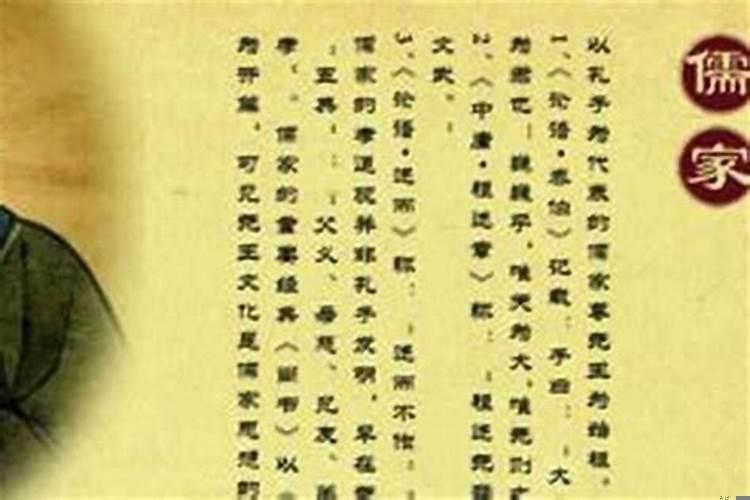 儒家
以孔子为代表的儒家尊尧王为始祖。
1、《论语·泰伯》记载:子曰:"大
为君也!巍巍乎,唯天为大,唯尧则之
2、《中庸·祖述章》称:"祖述尧舜
文武。"
3、《论语·述而》称:"述而不作:
儒家的孝道观并非孔子发明,早在尧
"五典":"父义、母慈、兄友、弟
孝"。儒家的重要经典《尚书》以
为开篇,可见尧王文化是儒家思想的